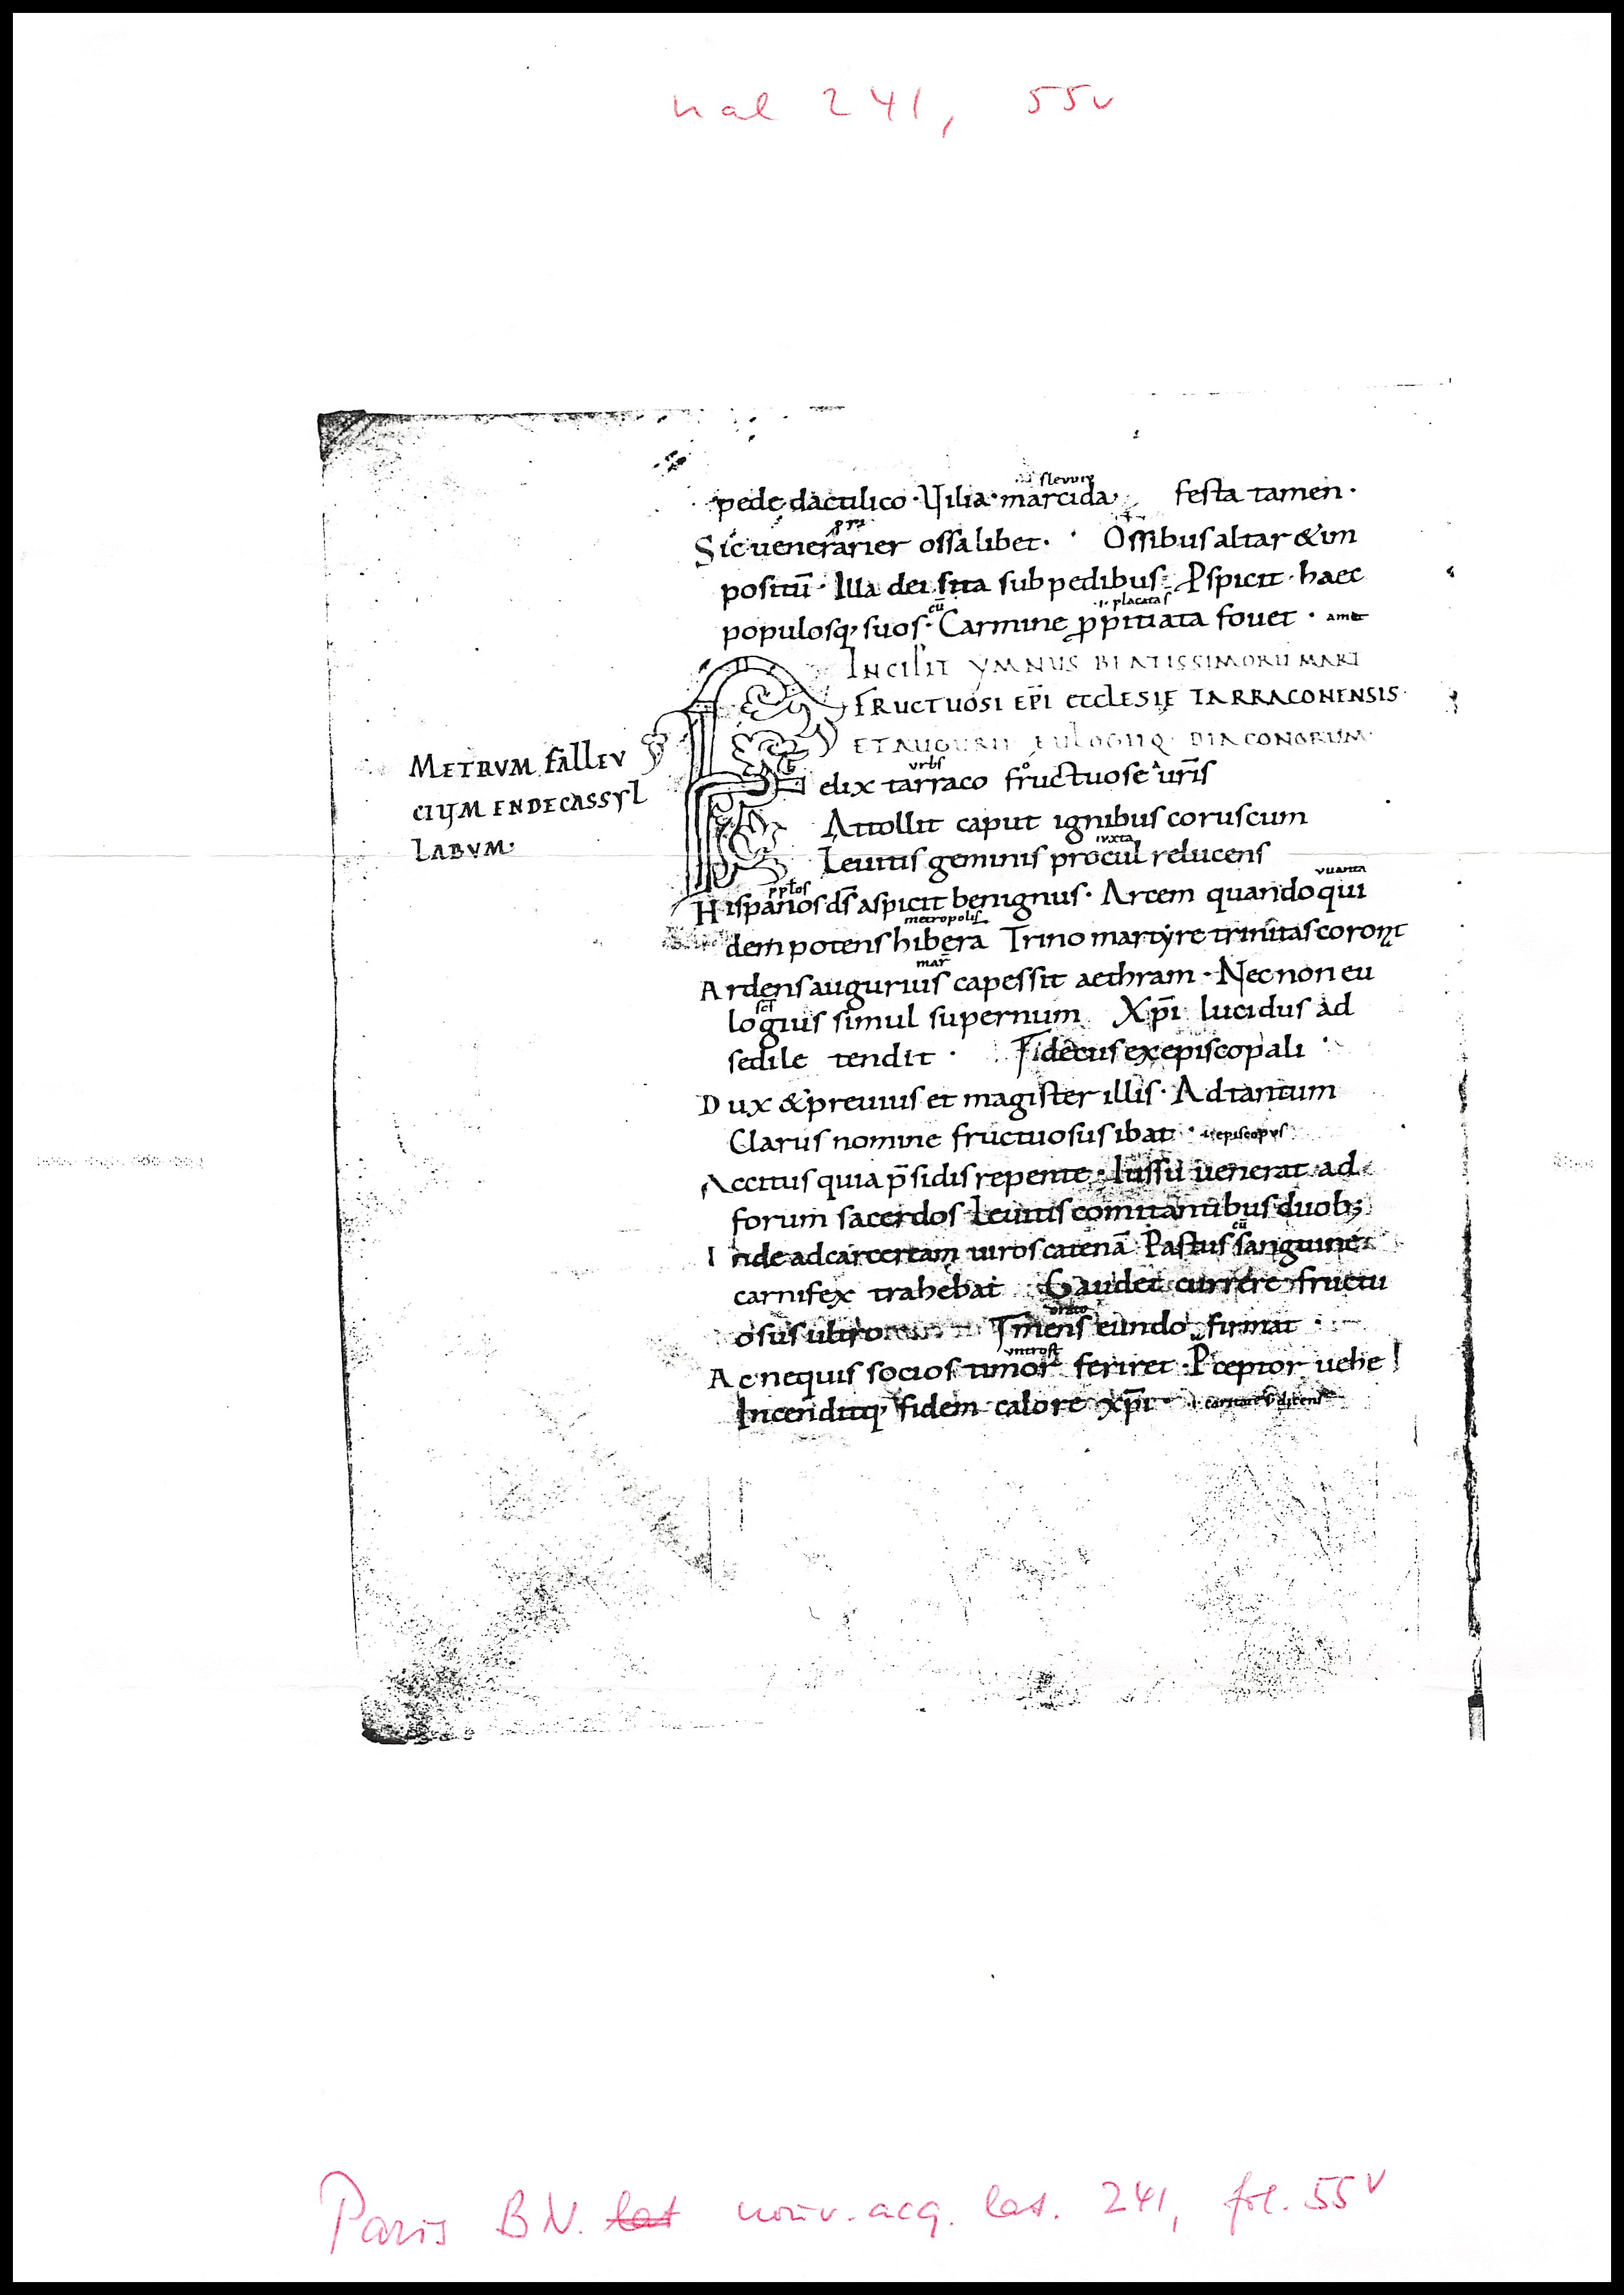 nal 241, 55v
flevvre
pede dactulico · Vilia · marcida festa tamen ·
Sic uenerarier ossa libet · Ossibus altar & im
positū · Illa dei sita sub pedibus · Pspicit · haec
cū .i. placatas
populosq; suos · Carmine ppitiata fouet · amet
INCIPIT YMNUS BEATISSIMORŪ MARTI
FRUCTUOSI EP̄I ECCLESIĘ TARRACONENSIS ·
ET AUGURII EULOGIIQ · DIACONORUM ·
METRVM FALLEV
CIŲM ENDECASSYL
LABVM ·
vrbs
Felix tarraco fructuose ur̄is
Attollit caput ignibus coruscum
iuxta
Leuitis geminis procul relucens
pplos
Hispanos ds̄ aspicit benignus · Arcem quando qui
metropolis
dem potens hibera Trino martyre trinitas coronet
mar̄
Ardens augurius capessit aethram · Nec non eu
sc̄s
logius simul supernum Xp̄i lucidus ad
sedile tendit · Fidecus ex episcopali
Dux & preuius et magister illis · Ad tantum
Clarus nomine fructuosus ibat · .i. episcopvs
Accitus quia p̄sidis repente · Iussu uenerat ad
forum sacerdos Leuitis comitantibus duob;
cū
Inde ad carceream uiros catenā Pastus sanguine
carnifex trahebat Gaudet currere fructu
osus ultro
eundo firmat
Ac nequis socios timor feriret · Pceptor uehe
Incenditq; fidem calore xp̄i ·
Paris BN. nouv. acq. lat. 241, fol. 55v